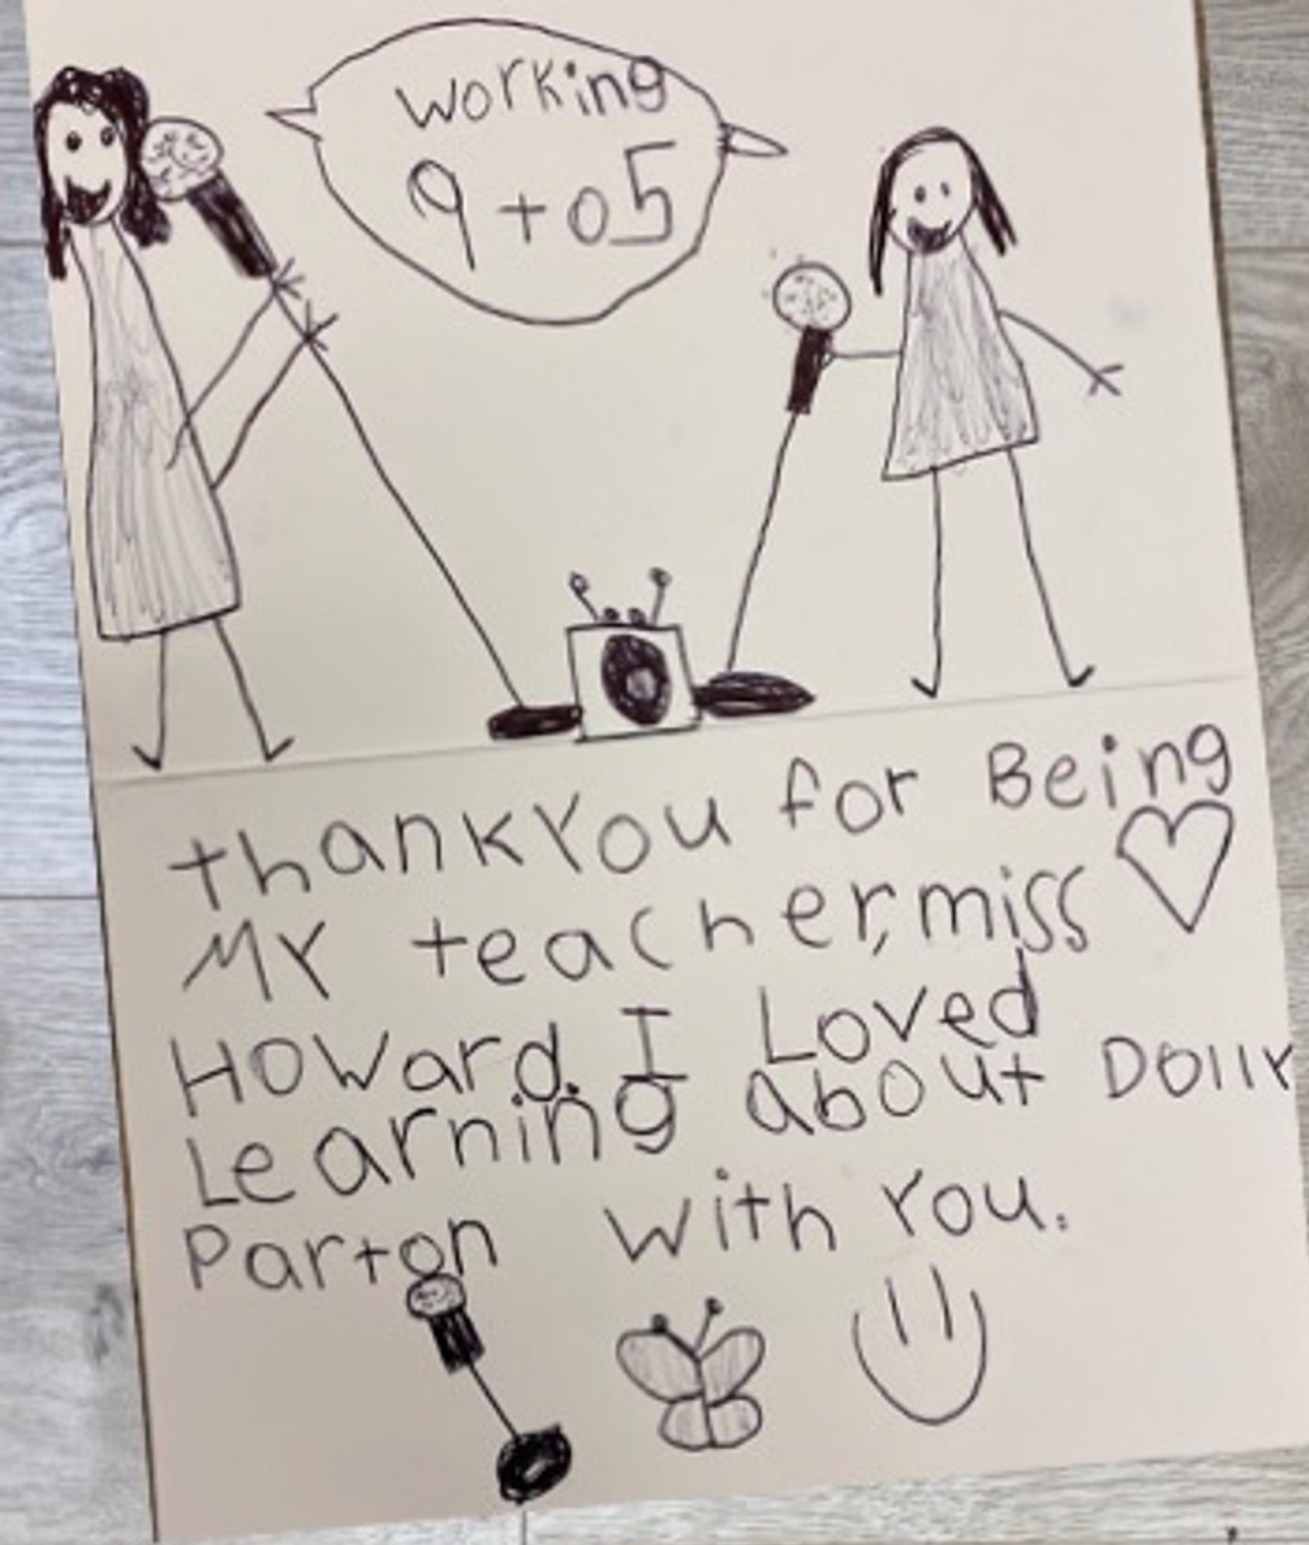 working
9 to 5
thank You for Being
MY teacher, miss
HOWard. I Loved
Learning about DOllY
Parton with You.